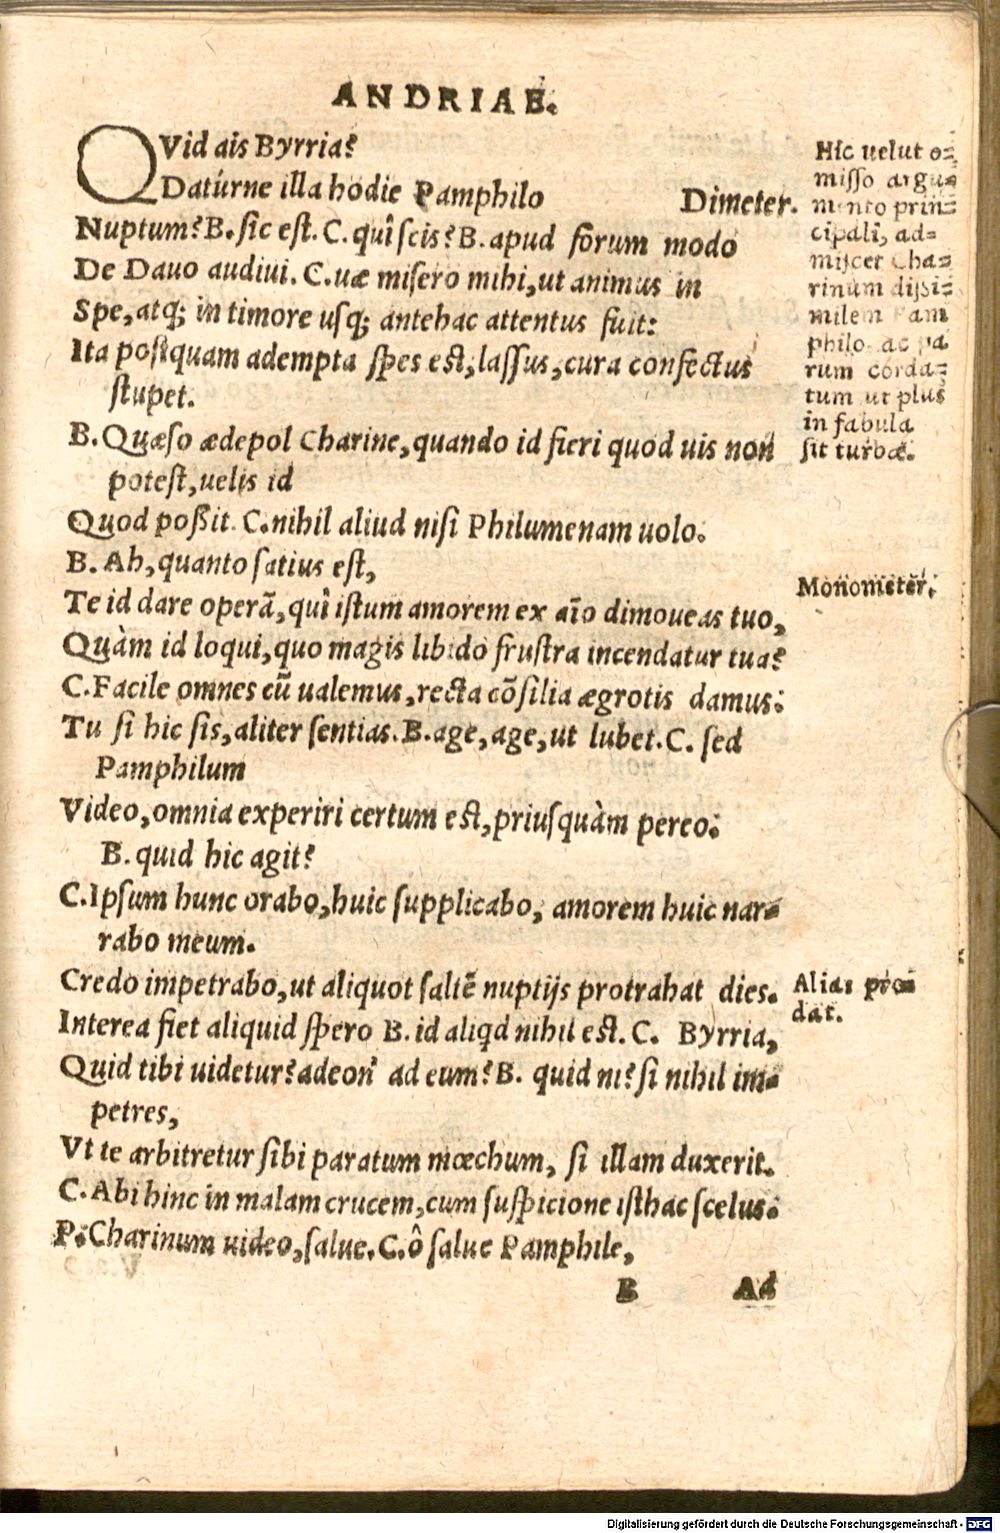 ANDRIAE.
QVid ais Byrria?
Datúrne illa hodie Pamphilo
Dimeter.
Nuptum? B. sic est. C. quî scis? B. apud forum modo
De Dauo audiui. C. uæ misero mihi, ut animus in
Spe, atq; in timore usq; antehac attentus fuit:
Ita postquam adempta spes est, lassus, cura confectus
stupet.
B. Quæso ædepol Charine, quando id fieri quod uis non
potest, uelis id
Quod poßit. C. nihil aliud nisi Philumenam uolo.
B. Ah, quanto satius est,
Te id dare operã, quî istum amorem ex aĩo dimoueas tuo,
Quàm id loqui, quo magis libido frustra incendatur tua?
C. Facile omnes cũ ualemus, recta cõsilia ægrotis damus:
Tu si hic sis, aliter sentias. B. age, age, ut lubet. C. sed
Pamphilum
Video, omnia experiri certum est, priusquàm pereo:
B. quid hic agit?
C. Ipsum hunc orabo, huic supplicabo, amorem huic nar=
rabo meum.
Credo impetrabo, ut aliquot saltẽ nuptijs protrahat dies.
Interea fiet aliquid spero B. id aliqd nihil est. C. Byrria,
Quid tibi uidetur? adeon' ad eum? B. quid ni? si nihil im=
petres,
Vt te arbitretur sibi paratum mœchum, si illam duxerit.
C. Abi hinc in malam crucem, cum suspicione isthac scelus:
P. Charinum uideo, salue. C. ô salue Pamphile,
B Ad
Hic uelut o=
misso argu=
mento prin=
cipali, ad=
miscet Cha=
rinum dißi=
milem Pam
philo ac pa
rum corda=
tum ut plus
in fabula
sit turbæ.
Monometer.
Alias pro=
dat.
Digitalisierung gefördert durch die Deutsche Forschungsgemeinschaft - DFG